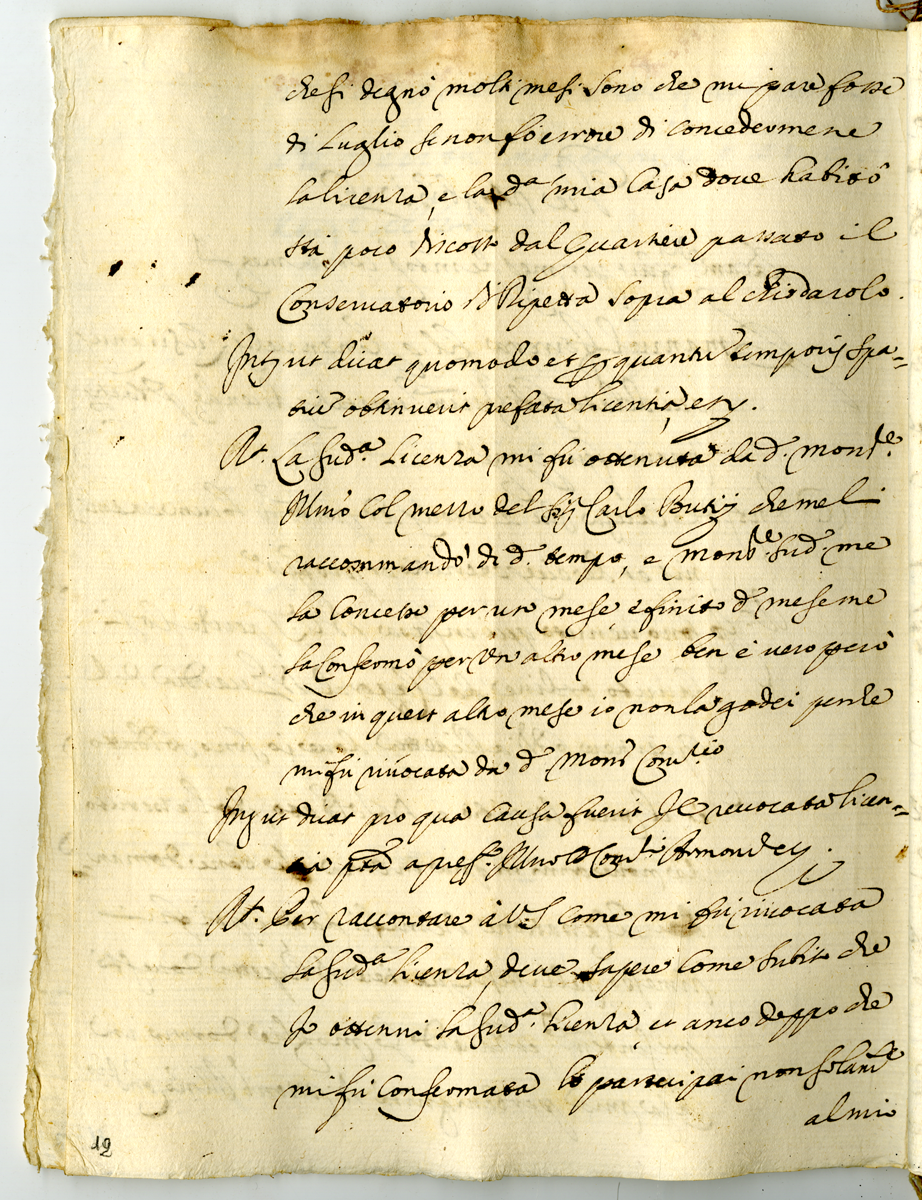 che si degnò molti mesi sono che mi pare fosse
di Luglio se non fò errore di concedermene
la licenza, e la d.ª mia Casa dove habitò
stà poco discosto dal Quartiere passato il
Conservatorio di Ripetta sopra al Chiodarolo.
Int.s ut dicat quomodo et per quantũ temporis spa=
tiũ obtinuerit prefata licentiã, etz.
Rt. La sud.ª Licenza mi fù ottenuta da d.º Mons.re
Ill̃mo Col mezzo del Sig Carlo che meli
raccommandò di d.º tempo, e Mons.re Sud.º me
la concesse per un mese, e finito d.º mese me
la Confermò per Un altro mese ben è vero però
che in quest altro mese io non la godei perche
mi fù rivocata da d.º Mons.
Int.s ut dicat pro qua causa fuerit Il revocata licen=
tia pt̃a a pref.º Ill̃mo D
Rt. Per raccontare à V.S come mi fù rivocata
la sud.ª licenza, deve sapere come subito che
Io ottenni la sud.ª licenza, et anco doppo che
mi fù confermata lo partecipai non solam.te
al mio
12